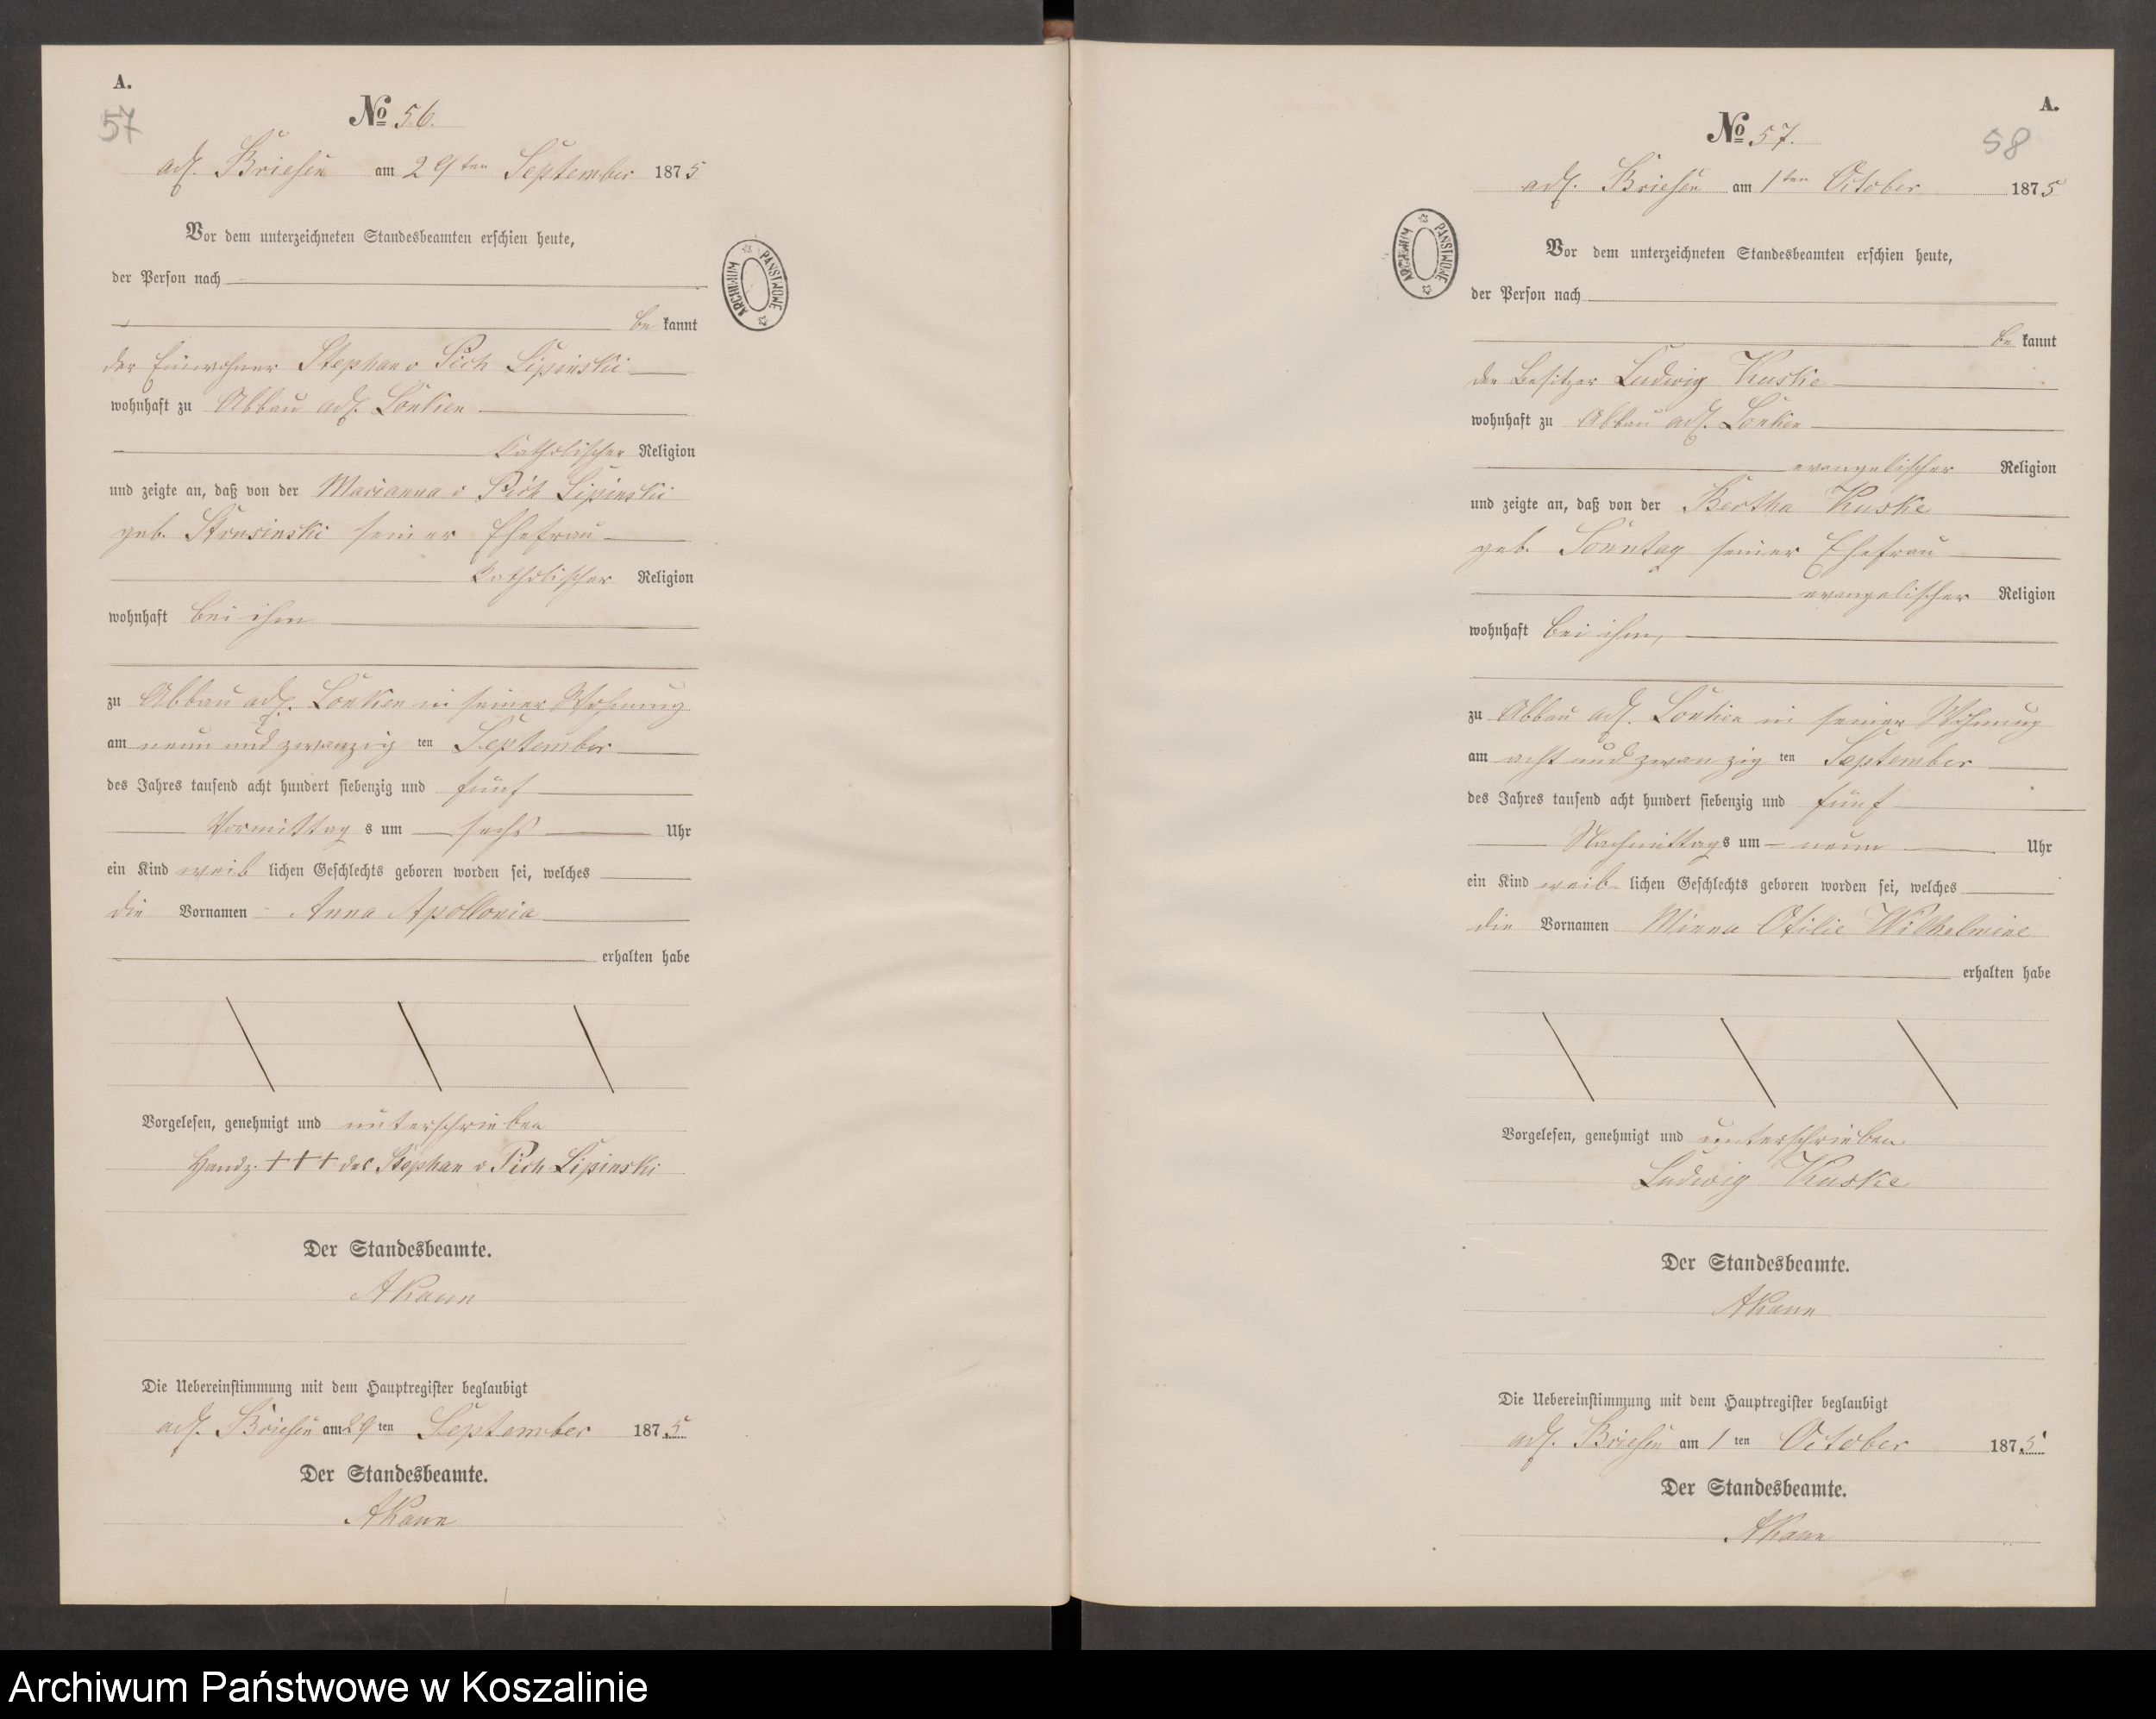 A.
57
No 56.
adl. Briesen am 29ten September 1875
Vor dem unterzeichneten Standesbeamten erschien heute,
der Person nach
be kannt
der Einwohner Stephan v Pich Lipinski
wohnhaft zu Abbau adl. Lonken
katholischer Religion
und zeigte an, daß von der Marianna v Pich Lipinski
geb. Strusinski seiner Ehefrau
katholischer Religion
wohnhaft bei ihm
zu Abbau adl. Lonken in seiner Wohnung
am neun und zwanzig ten September
des Jahres tausend acht hundert siebenzig und fünf
Vormittag s um sechs Uhr
ein Kind weib lichen Geschlechts geboren worden sei, welches
die Vornamen Anna Apollonia
erhalten habe
Vorgelesen, genehmigt und unterschrieben
Handz. +++ des Stephan v Pich Lipinski
Der Standesbeamte.
AKaun
Die Uebereinstimmung mit dem Hauptregister beglaubigt
adl. Briesen am 29 ten September 1875
Der Standesbeamte.
AKaun
ARCHIWUM PAŃSTWOWE
A.
58
No 57.
adl. Briesen am 1ten October 1875
Vor dem unterzeichneten Standesbeamten erschien heute,
der Person nach
be kannt
der Besitzer Ludwig Kuske
wohnhaft zu Abbau adl. Lonken
evangelischer Religion
und zeigte an, daß von der Bertha Kuske
geb. Sonntag seiner Ehefrau
evangelischer Religion
wohnhaft bei ihm,
zu Abbau adl. Lonken in seiner Wohnung
am acht und zwanzig ten September
des Jahres tausend acht hundert siebenzig und fünf
Nachmittag s um neun Uhr
ein Kind weib lichen Geschlechts geboren worden sei, welches
die Vornamen Minna Otilie Wilhelmine
erhalten habe
Vorgelesen, genehmigt und unterschrieben
Ludwig Kuske
Der Standesbeamte.
AKaun
Die Uebereinstimmung mit dem Hauptregister beglaubigt
adl. Briesen am 1 ten October 1875
Der Standesbeamte.
AKaun
ARCHIWUM PAŃSTWOWE
Archiwum Państwowe w Koszalinie